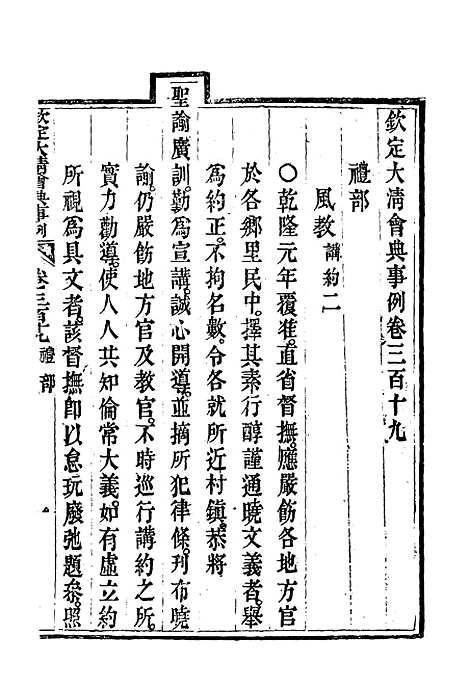 欽定大清會典事例卷三百十九
禮部
風教 講約二
○乾隆元年覆准。直省督撫。應嚴飭各地方官
於各鄉里民中。擇其素行醇謹通曉文義者。舉
為約正。不拘名數。令各就所近村鎮。恭將
聖諭廣訓。勤為宣講。誠心開導。並摘所犯律條。刊布曉
諭。仍嚴飭地方官及教官。不時巡行講約之所。
實力勸導。使人人共知倫常大義。如有虛立約
所視為具文者。該督撫即以怠玩廢弛題參。照
欽定大清會典事例 卷三百十九 禮部 一